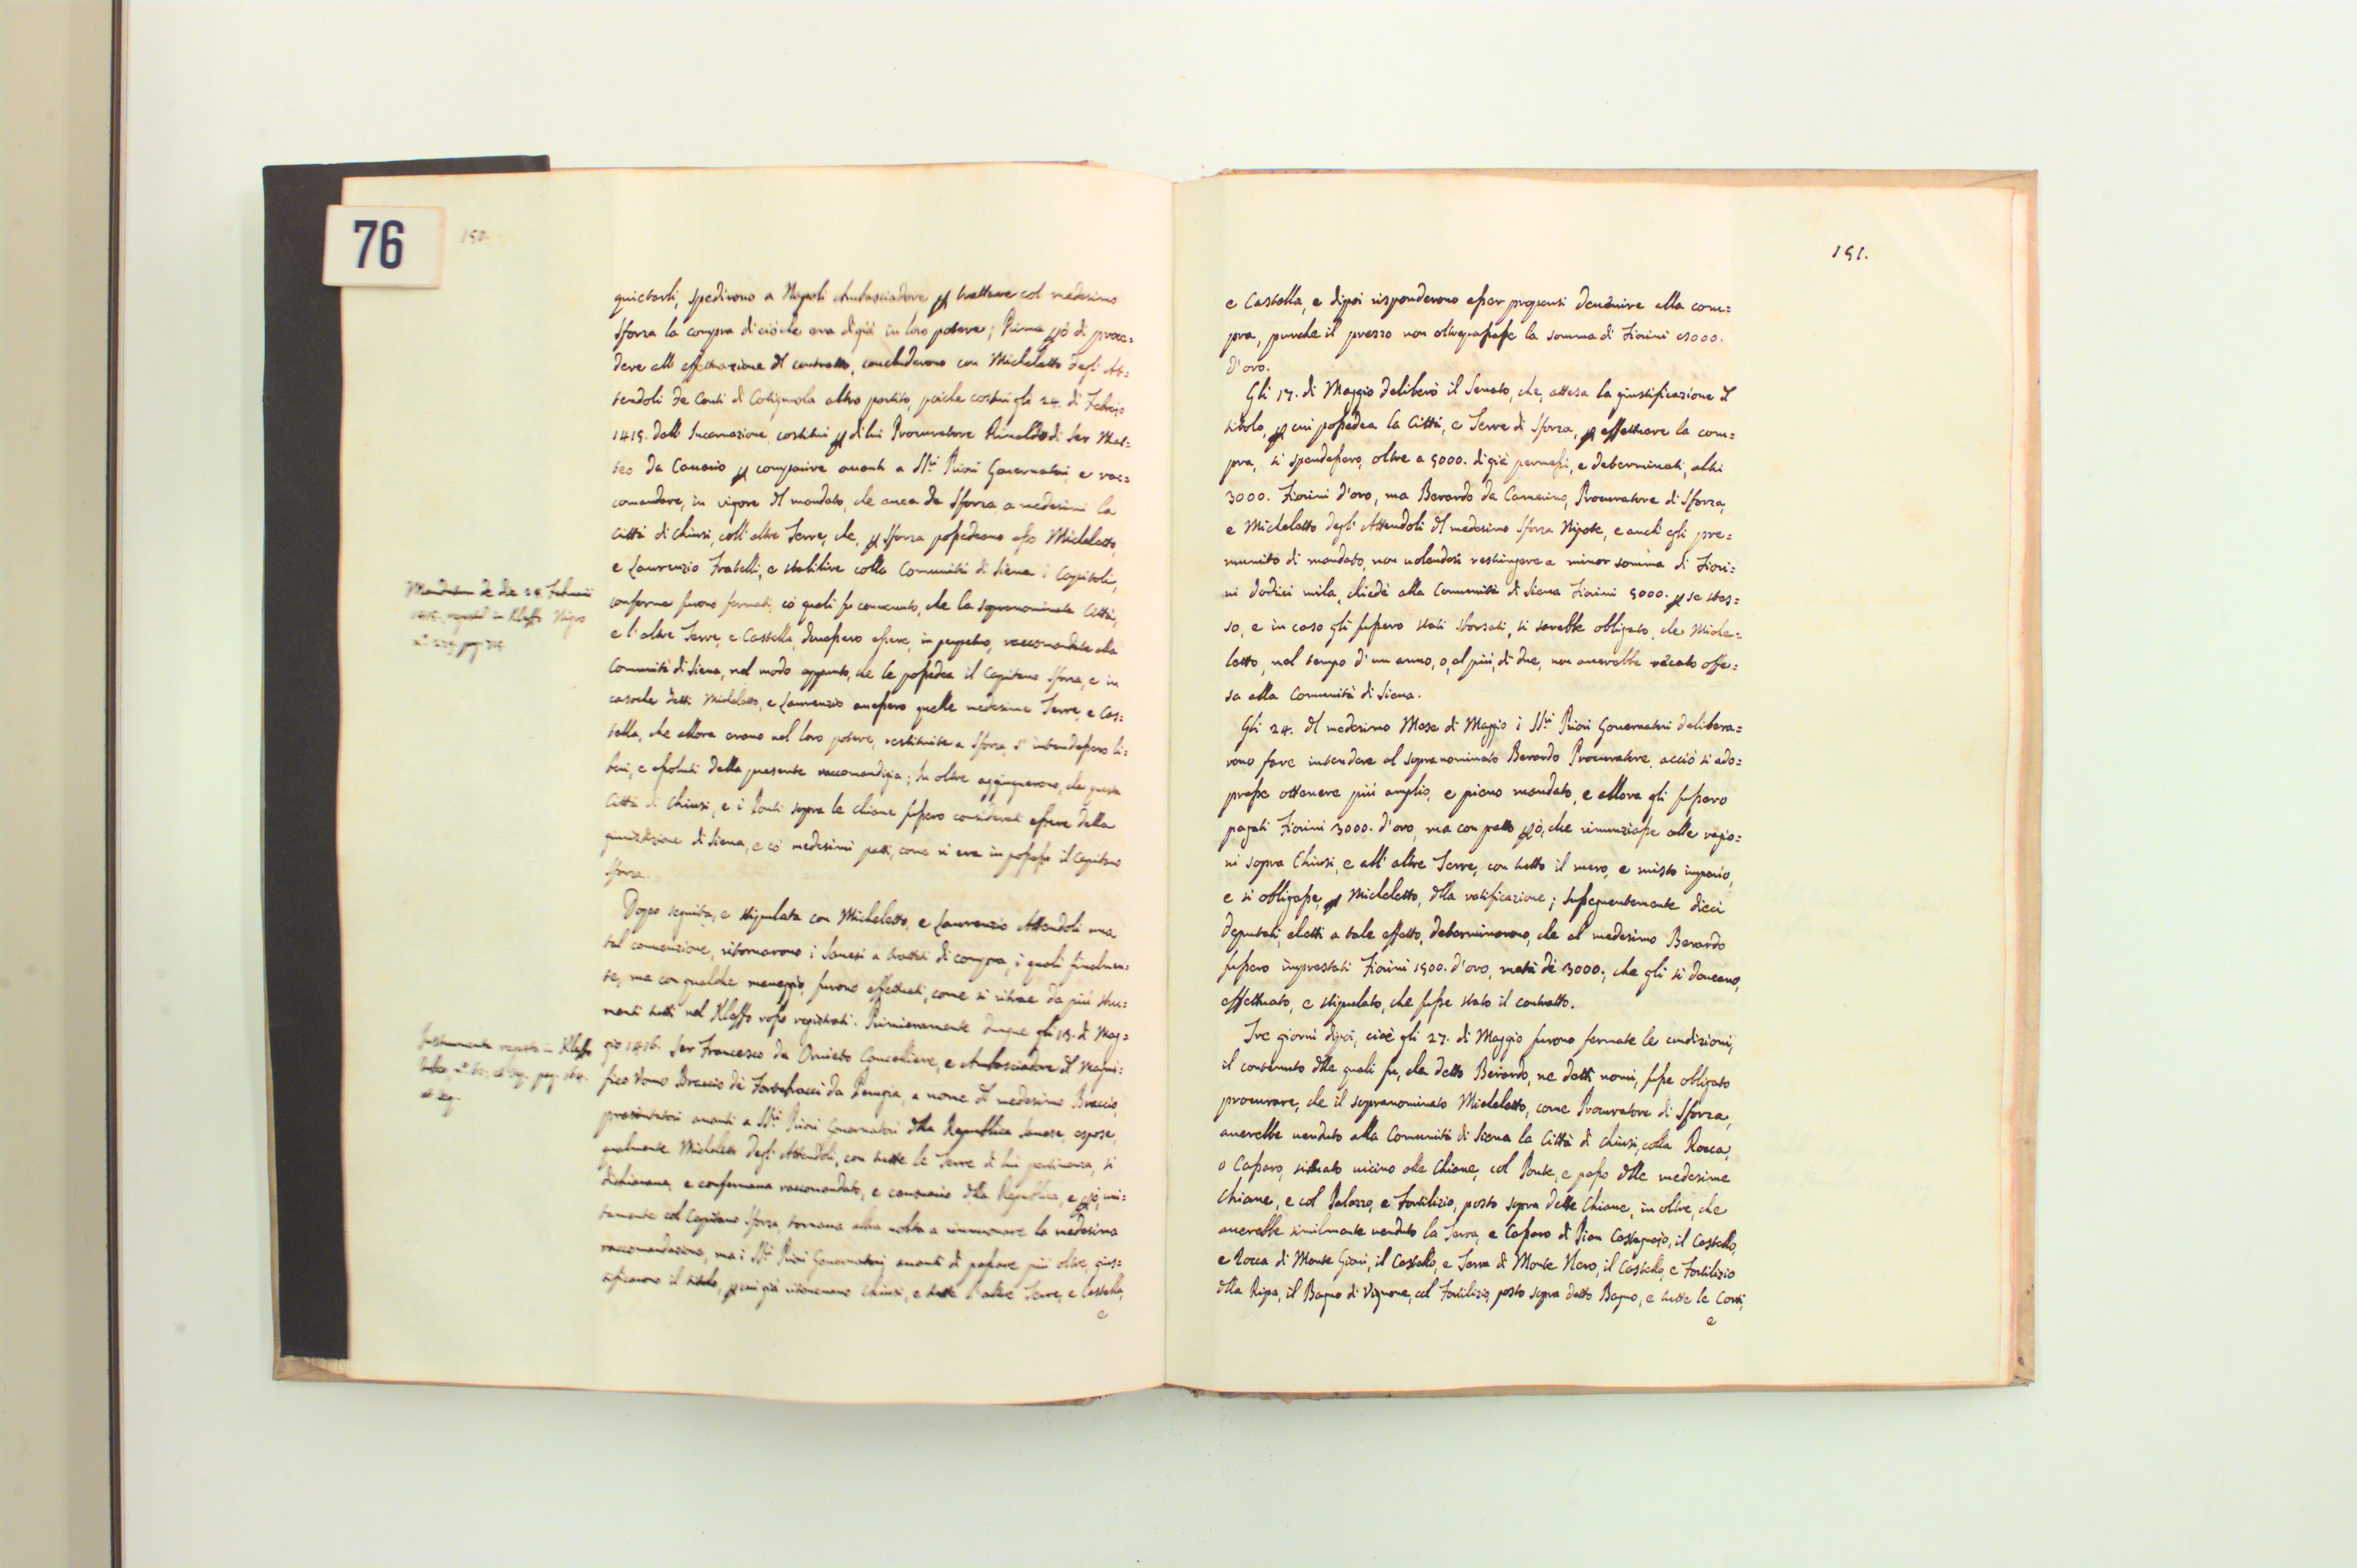 76
150.
quietarli, spedirono a Napoli Ambasciadore p trattare col medesimo
Sforza la compra di ciò che era di già in loro potere; Prima pò di proce=
dere all'effettuazione dl contratto, concluderono con Micheletto degli At=
tendoli de Conti di Cotignola altro partito, poiche costui gli 24. di Febrajo
1415. dall'Incarnazione, costituì p di lui Procuratore Rinaldo di Ser Mat=
teo da Camerino p comparire auanti a SS.ri Priori Gouernatori e rac=
comandare, in vigore dl mandato, che auea da Sforza, a medesimi la
Città di Chiusi, coll'altre Terre, che, p Sforza possedeano esso Micheletto,
e Laurenzio Fratelli, e stabilire colla Comunità di Siena i Capitoli,
conforme furono fermati, có quali fu conuenuto, che la sopranominata Città,
e l'altre Terre, e Castella, douessero essere, in perpetuo, raccomandate alla
Comunità di Siena, nel modo appunto, che le possedea il Capitano Sforza, e in
casoche detti Micheletto, e Laurenzio auessero quelle medesime Terre, e Cas=
tella, che allora erano nel loro potere, restituite a Sforza, s'intendessero li=
beri, e assoluti della presente raccomandigia; In oltre aggiunserono, che questa
Città di Chiusi, e i Ponti sopra le chiane fussero considerati essere della
giurisdizione di Siena, e có medesimi patti, come si era in possesso il Capitano
Sforza.
Mandatum de die 24. Februarii
1415. registr. in Kleffo Nigro
n.° 229. pag.
Dopo seguita, e stipulata con Micheletto, e Laurenzio Attendoli una
tal conuenzione, ritornarono i Sanesi a trattati di compra, i quali finalmen=
te, ma con qualche maneggio, furono effettuati, come si ritrae da più stru=
menti tutti nel Kleffo rosso registrati. Primieramente dunque gli 15. di Mag=
gio 1416. Ser Francesco da Oruieto Cancelliere, e Ambasciadore dl Magni=
fico Uomo Braccio de Fortebracci da Perugia, a nome dl medesimo Braccio,
presentatosi auanti a SS.ri Priori Gouernatori dlla Republica Sanese, espose,
qualmente Micheletto degli Attendoli, con tutte le Terre di lui pertinenza, si
dichiaraua, e confermaua raccomandato, e censuario dlla Republica, e pò, uni=
tamente col Capitano Sforza, tornaua altra uolta a rinnouare la medesima
raccomandazione, ma i SS.ri Priori Gouernatori auanti di passare più oltre, gius=
tificarono il titolo, p cui già riteneuano Chiusi, e tutte l'altre Terre, e Castella,
e
Instrumenta registr. in Kleffo
et seq. pag.
et seq.
151.
e Castella, e dipoi risponderono esser propensi deuenire alla com=
pra, purche il prezzo non oltrepassasse la somma di Fiorini 8000.
d'oro.
Gli 17. di Maggio deliberò il Senato, che, attesa la giustificazione dl
titolo, p cui possedea la Città, e Terre di Sforza, p effettuare la com=
pra, si spendessero, oltre a 5000. di già permessi, e determinati, altri
3000. Fiorini d'oro, ma Berardo da Camerino, Procuratore di Sforza,
e Micheletto degli Attendoli dl medesimo Sforza Nipote, e anch'egli pre=
munito di mandato, non uolendosi restringere a minor somma di Fiori=
ni dodici mila, chiedè alla Comunità di Siena Fiorini 5000. p se stes=
so, e in caso gli fussero stati sborsati, si sarebbe obligato, che Miche=
letto, nel tempo d'un anno, o, al più, di due, non auerebbe recato offe=
sa alla Comunità di Siena.
Gli 24. dl medesimo Mese di Maggio i SS.ri Priori Gouernatori delibera=
rono fare intendere al sopranominato Berardo Procuratore, acciò si ado=
prasse ottenere più amplio, e pieno mandato, e allora gli fussero
pagati Fiorini 3000. d'oro, ma con patto pò, che rinunziasse alle ragio=
ni sopra Chiusi, e all'altre Terre, con tutto il mero, e misto imperio,
e si obligasse, p Micheletto, dlla ratificazione; Susseguentemente dieci
deputati, eletti a tale effetto, determinarono, che al medesimo Berardo
fussero imprestati Fiorini 1500. d'oro, metà dé 3000., che gli si doueano,
effettuato, e stipulato, che fusse stato il contratto.
Tre giorni dipoi, cioè gli 27. di Maggio furono fermate le condizioni,
il contenuto dlle quali fu, che detto Berardo, ne detti nomi, fusse obligato
procurare, che il sopranominato Micheletto, come Procuratore di Sforza,
auerebbe uenduto alla Comunità di Siena la Città di Chiusi, colla Rocca,
o Cassero, situato uicino alle Chiane, col Ponte, e passo dlle medesime
Chiane, e col Palazzo, e Fortilizio, posto sopra dette Chiane, in oltre, che
auerebbe similmente uenduto la Terra, e Cassero di Pian Castagnajo, il Castello,
e Rocca di Monte Gioui, il Castello, e Terra di Monte Nero, il Castello, e Fortilizio
dlla Ripa, il Bagno di Vignone, col Fortilizio, posto sopra detto Bagno, e tutte le Corti,
e